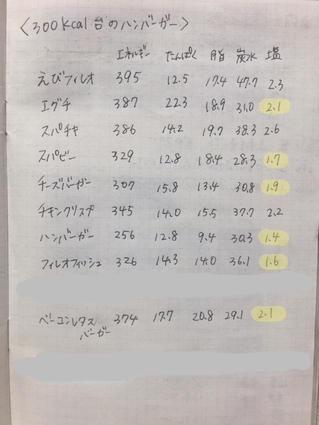 〈300kcal台のハンバーガー〉
エネルギー たんぱく 脂 炭水 塩
えびフィレオ 395 12.5 17.4 47.7 2.3
エグチ 387 22.3 18.9 31.0 2.1
スパチキ 386 14.2 19.7 38.3 2.6
スパビー 329 12.8 18.4 28.3 1.7
チーズバーガー 307 15.8 13.4 30.8 1.9
チキンクリスプ 345 14.0 15.5 37.7 2.2
ハンバーガー 256 12.8 9.4 30.3 1.4
フィレオフィッシュ 326 14.3 14.0 36.1 1.6
ベーコンレタス 374 17.7 20.8 29.1 2.1
バーガー